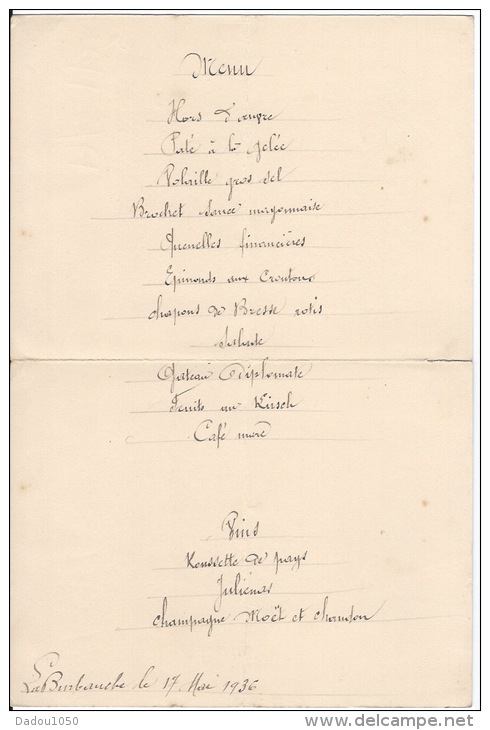 Menu
Hors d'œuvre
Paté à la gelée
Volaille gros sel
Brochet sauce mayonnaise
Quenelles financières
Epinards aux Croutons
chapons de Bresse rotis
Salade
Gateau diplomate
Fruits au Kirsch
Café moré
Vins
Roussette de pays
Julienas
champagne Moët et chandon
La Burbanche le 17 Mai 1936
Dadou1050